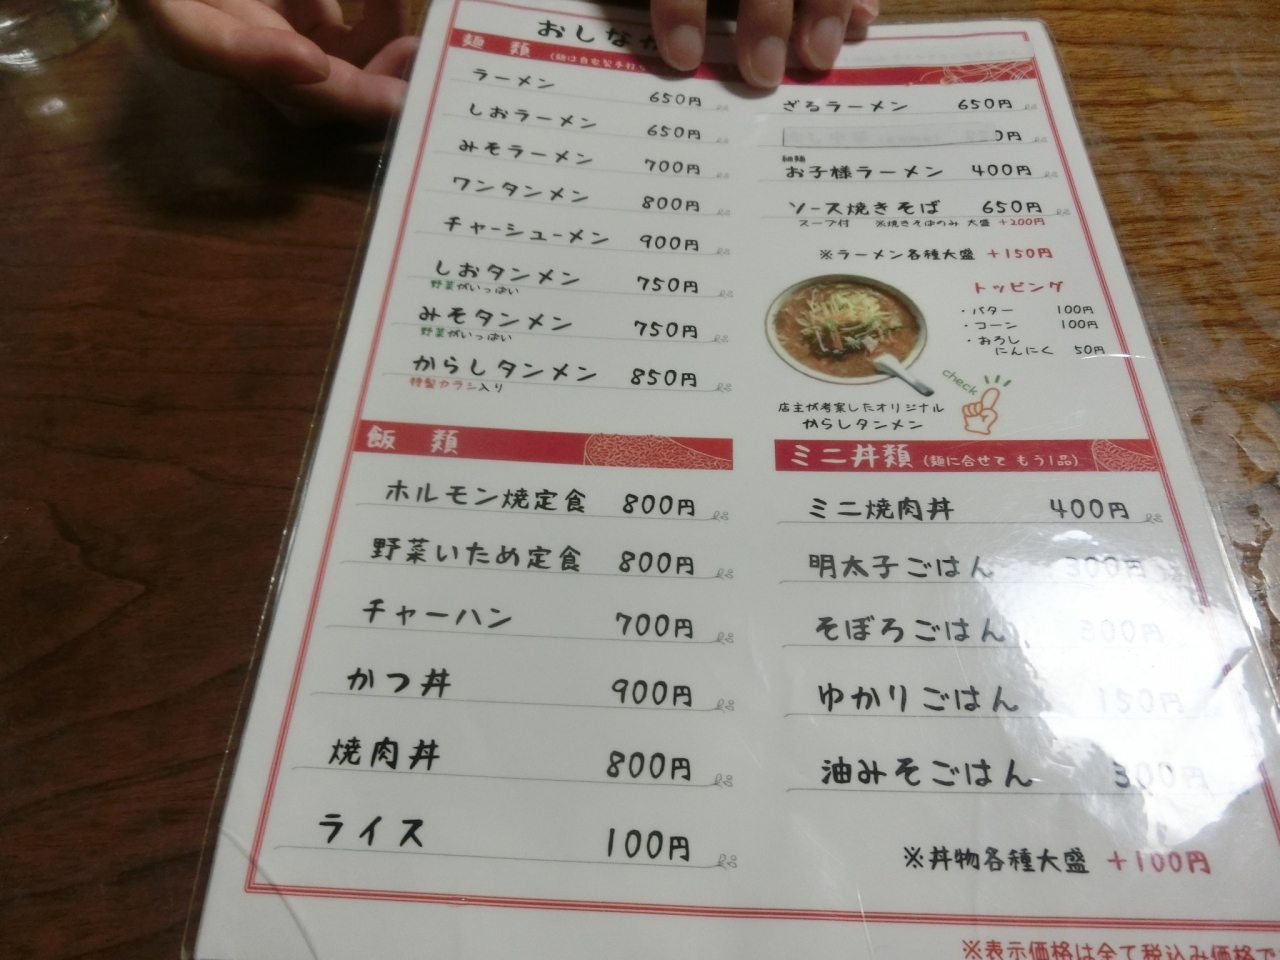 おしなが
麺類 (麺は自家製手打
ラーメン 650円
しおラーメン 650円
みそラーメン 700円
ワンタンメン 800円
チャーシューメン 900円
しおタンメン 750円
野菜がいっぱい
みそタンメン 750円
野菜がいっぱい
からしタンメン 850円
特製カラシ入り
ざるラーメン 650円
円
細麺
お子様ラーメン 400円
ソース焼きそば 650円
スープ付 ※焼きそばのみ 大盛 +200円
※ラーメン各種大盛 +150円
トッピング
・バター 100円
・コーン 100円
・おろし
にんにく 50円
check
店主が考案したオリジナル
からしタンメン
飯類
ホルモン焼定食 800円
野菜いため定食 800円
チャーハン 700円
かつ丼 900円
焼肉丼 800円
ライス 100円
ミニ丼類 (麺に合せて もう1品)
ミニ焼肉丼 400円
明太子ごはん 300円
そぼろごはん 300円
ゆかりごはん 150円
油みそごはん 300円
※丼物各種大盛 +100円
※表示価格は全て税込み価格で